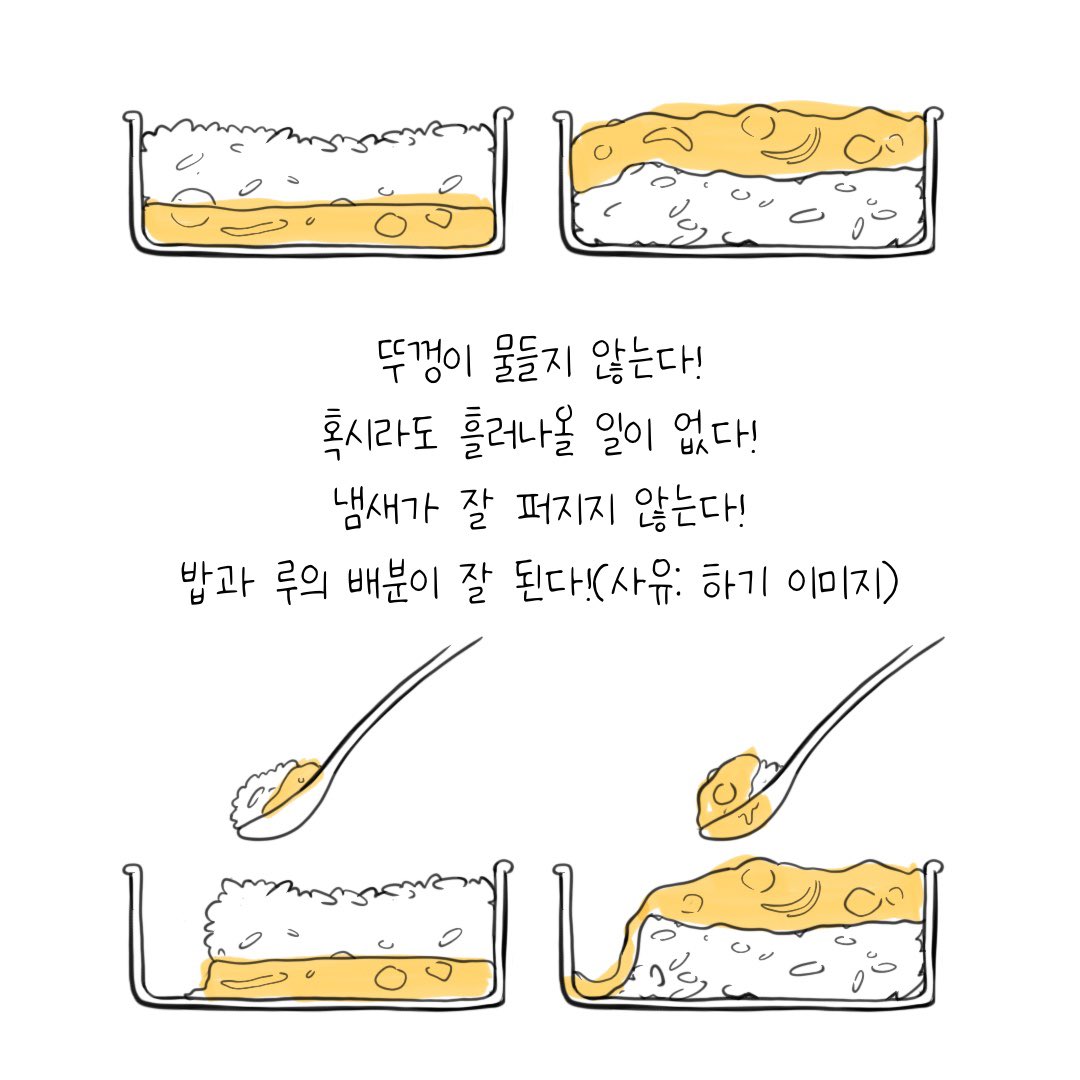 뚜껑이 물들지 않는다!
혹시라도 흘러나올 일이 없다!
냄새가 잘 퍼지지 않는다!
밥과 루의 배분이 잘 된다!(사유: 하기 이미지)